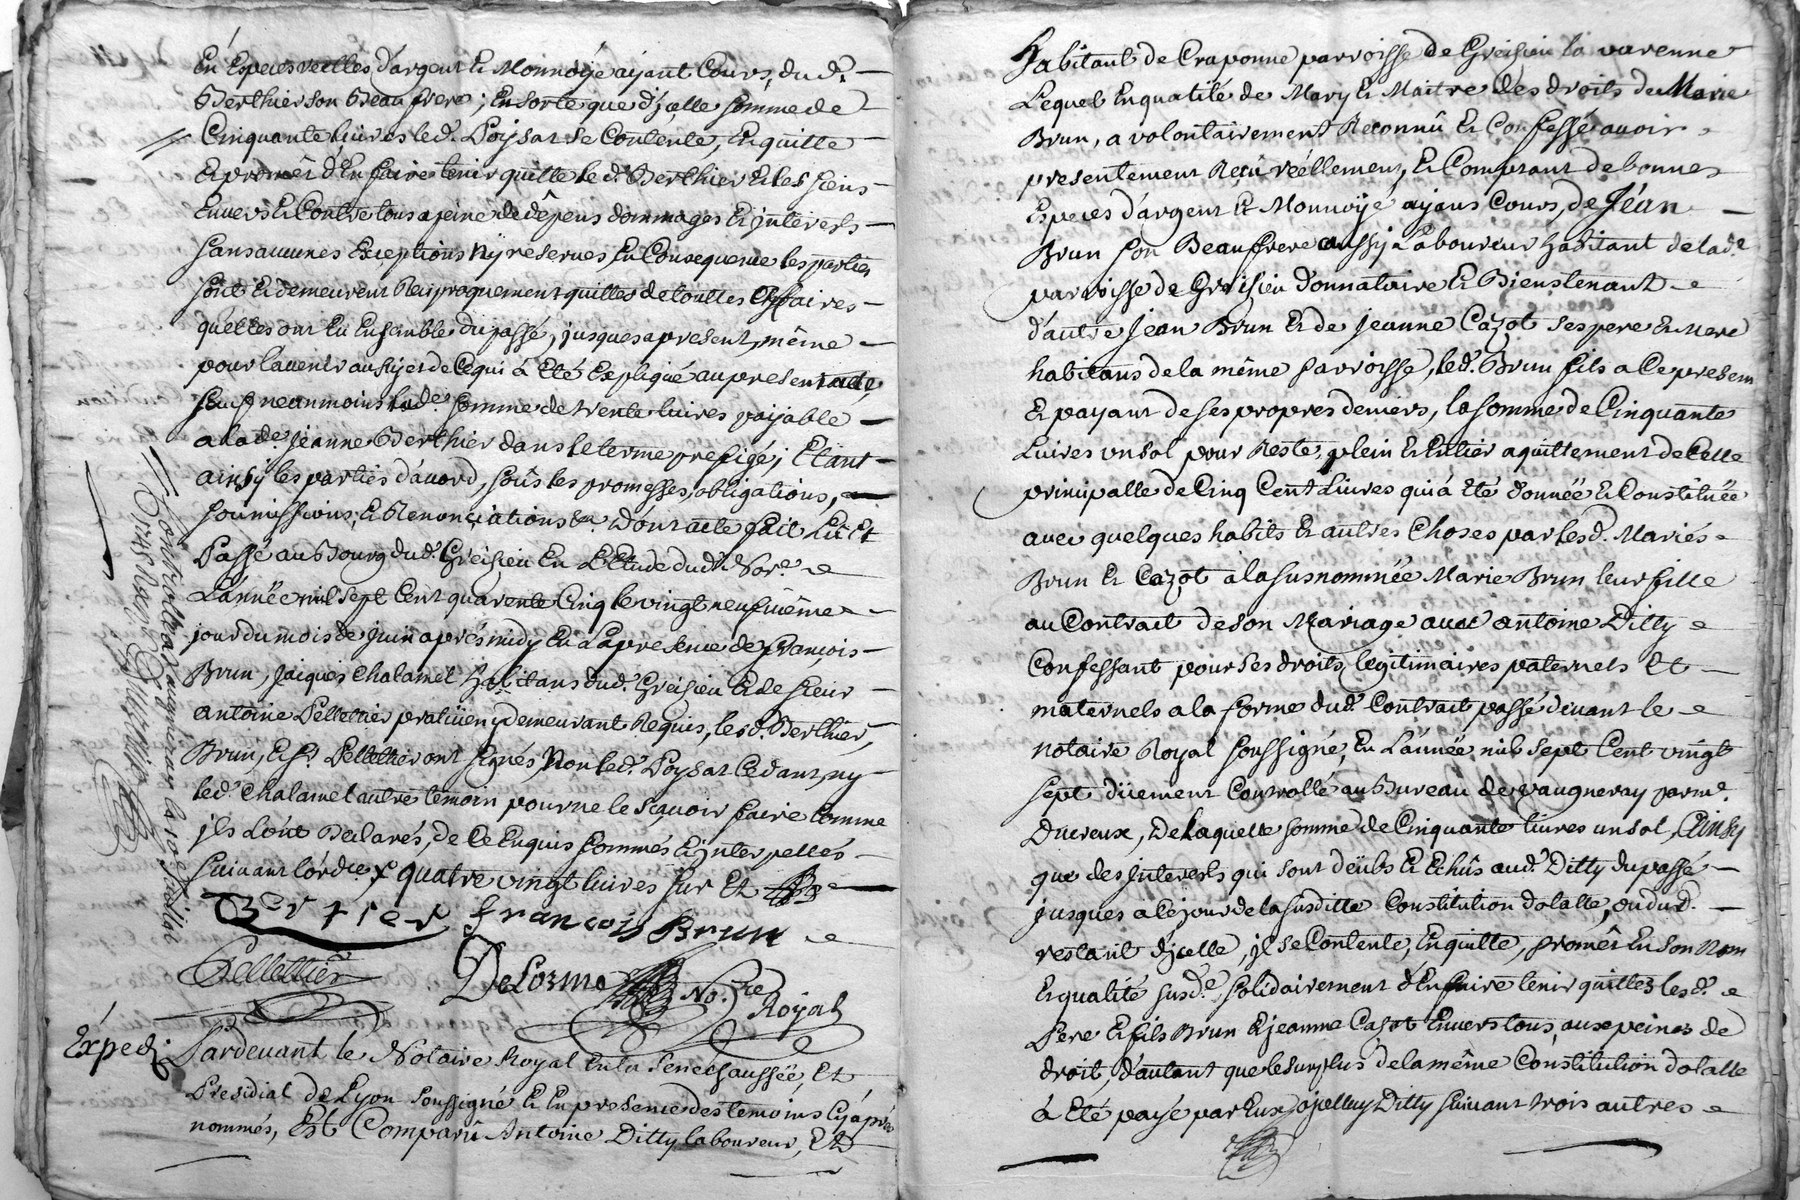 En Especes reélles d'argent Et Monnoÿe ayant Cours, du d.t
Berthier son Beau frere; En sorte que d'jcelle somme de
Cinquante livres led. Poysat se Contente, En quitte
Et promêt d'En faire tenir quitte le d. Berthier Et les siens
Envers Et Contre tous a peine de dêpens dommages Et jnterests
sans aucunes Exceptions nÿ reserves, En Consequence les parties
sont Et demeurent Reciproquement quittes de touttes affaires
qu'elles ont Eu Ensemble du passé, jusques a present, même
pour l'avenir au sujet de Ce qui à Eté Expliqué au present acte,
sauf neanmoins lad.e somme de trente livres paÿable
a lad.e Jeanne Berthier dans le terme prefigé; Etant
ainsÿ les parties d'acord, soûs les promesses, obligations,
soumissions, Et Renonciations &a. Dont acte fait Lû Et
Passé au Bourg dud. Greisieu En L'Etude dud. No.re
L'année mil sept Cent quarente Cinq le vingt neufvième
jour du mois de juin aprés midy En Lá presence de françois
Brun, Jacques Chalamel Habitans dud. Greisieu Et de sieur
antoine Pelletier praticien y demeurant Requis, les d. Berthier,
Brun, Et s.r Pelletier ont signés, Non led. Poysat Cedant, ny
led. Chalamel autre temoin pour ne le sçavoir faire Comme
jls L'ont Declarés, de Ce Enquis sommés Et jnterpellés
suivant l'ord.ce x quatre vingt livres sur Et
Bertier françois Brun
Pellettier DeLorme No.re Royal
Controllé a vaugneray le 10e Juillet
1745
Expedi.
Pardevant le Notaire Royal En la Senechaussée, Et
Presidial de Lyon soussigné Et En presence des temoins Cy aprés
nommés, Est Comparû Antoine Ditty laboureur, Et
Habitant de Craponne parroisse de Greisieu la varenne
Lequel En qualité de Mary Et Maitre des droits de Marie
Brun, a volontairement Reconnû Et Confessé avoir
presentement Reçû réellement, Et Comptant de bonnes
Especes d'argent Et Monnoÿe ayans Cours, de Jéan
Brun son Beau frere aussy Laboureur habitant de lad.e
parroisse de Greisieu donnataire Et Bienstenant
d'autre Jean Brun Et de Jeanne Cazot ses pere Et Mere
habitans de la même Parroisse, led. Brun fils a Ce present
Et payant de ses propres deniers, la somme de Cinquante
Livres un sol pour Reste, plein Et Entier aquittement de Celle
principalle de Cinq Cent Livres qui à Eté donnée Et Constituée
avec quelques habits Et autres Choses par lesd. Mariés
Brun Et Cazot à la susnommée Marie Brun leur fille
au Contrait de son Mariage avec antoine Ditty
Confessant pour ses droits legitimaires paternels Et
maternels a la forme dud. Contrait passé devant le
notaire Royal soussigné, En L'année mil sept Cent vingt
sept düement Controllé au Bureau de vaugneray par m.e
Ducreux, De laquelle somme de Cinquante livres un sol, Ainsy
que des jnterests qui sont deübs Et Echûs aud. Ditty du passé
jusques à Cé jour de la susditte Constitution dotalle, ou dud.
restant d'jcelle, jl se Contente, En quitte, promêt En son Nom
Et qualité susd.e solidairement d'En faire tenir quittes les d.
Pere Et fils Brun Et jeanne Cazot Envers tous, aux peines de
droit, d'autant que le surplus de la même Constitution dotalle
à Eté payé par Eux a jcelluy Ditty suivant trois autres